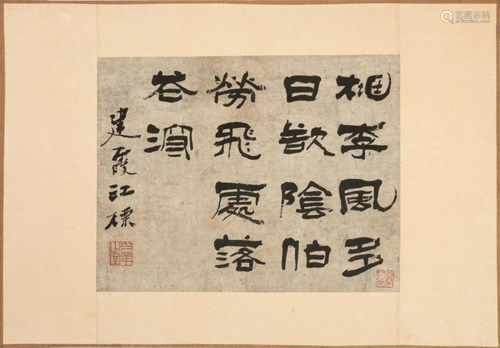 桃李風多
日欲陰伯
勞飛處落
花深
建霞江標